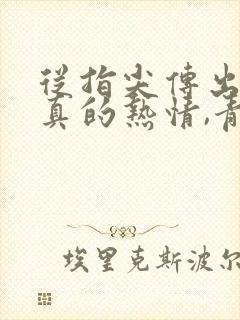 從指尖傳出
真的熱情,青
埃里克斯波尔